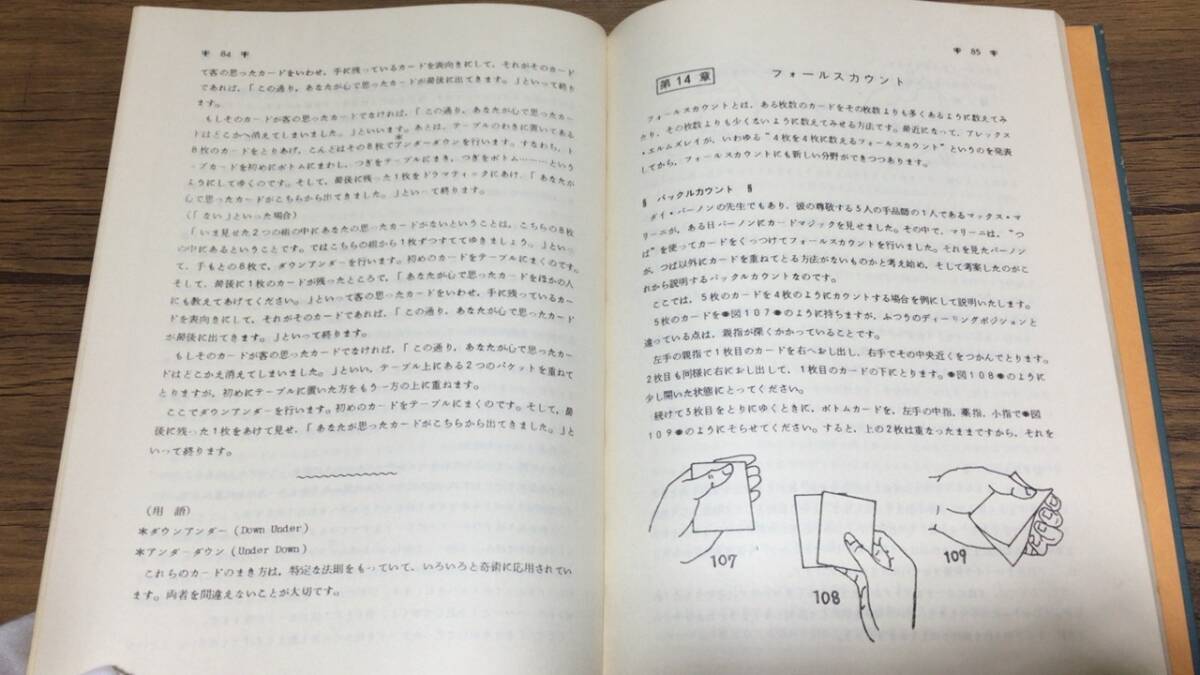 ✾ 84 ✾
て客の思ったカードをいわせ，手に残っているカードを表向きにして，それがそのカード
であれば，「この通り，あなたが心で思ったカードが最後に出てきます。」といって終り
ます。
もしそのカードが客の思ったカードでなければ，「この通り，あなたが心で思ったカー
ドはどこかへ消えてしまいました。」といいます。あとは，テーブルのわきに置いてある
8枚のカードをとりあげ，こんどはその8枚で＊アンダーダウンを行います。すなわち，ト
ップカードを初めにボトムにまわし，つぎをテーブルにまき，つぎをボトム………という
ようにしてゆくのです。そして，最後に残った1枚をドラマティックにあけ，「あなたが
心で思ったカードがこちらから出てきました。」といって終ります。
（「ない」といった場合）
「いま見せた2つの組の中にあなたの思ったカードがないということは，こちらの8枚
の中にあるということです。ではこちらの組から1枚ずつすててゆきましょう。」といっ
て，手もとの8枚で，ダウンアンダーを行います。初めのカードをテーブルにまくのです。
そして，最後に1枚のカードが残ったところで，「あなたが心で思ったカードをほかの人
にも教えてあげてください。」といって客の思ったカードをいわせ，手に残っているカー
ドを表向きにして，それがそのカードであれば，「この通り，あなたが心で思ったカード
が最後に出てきます。」といって終ります。
もしそのカードが客の思ったカードでなければ，「この通り，あなたが心で思ったカー
ドはどこかえ消えてしまいました。」といい，テーブル上にある2つのパケットを重ねて
とりますが，初めにテーブルに置いた方をもう一方の上に重ねます。
ここでダウンアンダーを行います。初めのカードをテーブルにまくのです。そして，最
後に残った1枚をあけて見せ，「あなたが思ったカードがこちらから出てきました。」と
いって終ります。
（用 語）
＊ダウンアンダー (Down Under)
＊アンダーダウン (Under Down)
これらのカードのまき方は，特定な法則をもっていて，いろいろと奇術に応用されてい
ます。両者を間違えないことが大切です。
✾ 85 ✾
第14章 フォールスカウント
フォールスカウントとは，ある枚数のカードをその枚数よりも多くあるように数えてみ
たり，その枚数よりも少くないように数えてみせる方法です。最近になって，アレックス
・エルムズレイが，いわゆる“4枚を4枚に数えるフォールスカウント”というのを発表
してから，フォールスカウントにも新しい分野ができつつあります。
§ バックルカウント §
ダイ・バーノンの先生でもあり，彼の尊敬する5人の手品師の1人であるマックス・マ
リーニが，ある日バーノンにカードマジックを見せました。その中で，マリーニは，“つ
ば”を使ってカードをくっつけてフォールスカウントを行いました。それを見たバーノン
が，つば以外にカードを重ねてとる方法がないものかと考え始め，そして考案したのがこ
れから説明するバックルカウントなのです。
ここでは，5枚のカードを4枚のようにカウントする場合を例にして説明いたします。
5枚のカードを●図107●のように持ちますが，ふつうのディーリングポジションと
違っている点は，親指が深くかかっていることです。
左手の親指で1枚目のカードを右へおし出し，右手でその中央近くをつかんでとります。
2枚目も同様に右におし出して，1枚目のカードの下にとります。●図108●のように
少し開いた状態にとってください。
続けて3枚目をとりにゆくときに，ボトムカードを，左手の中指，薬指，小指で●図
109●のようにそらせてください。すると，上の2枚は重なったままですから，それを
107
108
109